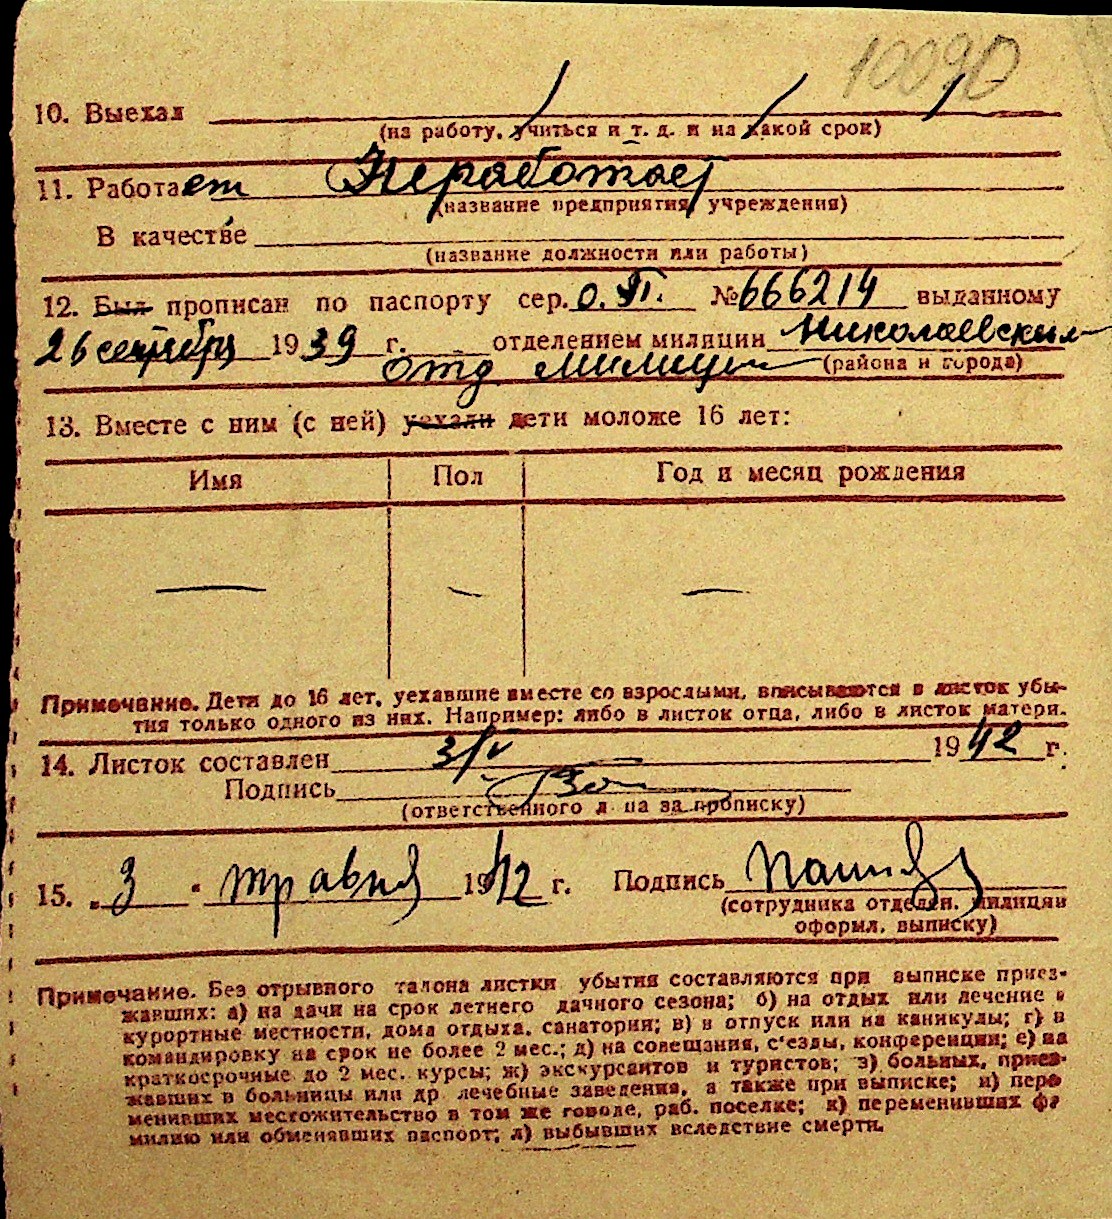 10090
10. Выехал
(на работу, учиться и т. д. и на какой срок)
11. Работает Неработает
(название предприятия, учреждения)
В качестве
(название должности или работы)
12. Был прописан по паспорту сер. №666214 выданному
26 сентября 1939 г. отделением милиции Николаевским
(района и города)
отд милиции
13. Вместе с ним (с ней) уехали дети моложе 16 лет:
Имя Пол Год и месяц рождения
— — —
Примечание. Дети до 16 лет, уехавшие вместе со взрослыми, вписываются в листок убы-
тия только одного из них. Например: либо в листок отца, либо в листок матери.
14. Листок составлен 3/V 1942 г.
Подпись
(ответственного лица за прописку)
15. „3" травня 1942 г. Подпись
(сотрудника отделен. милиции
оформл. выписку)
Примечание. Без отрывного талона листки убытия составляются при выписке приез-
жавших: а) на дачи на срок летнего дачного сезона; б) на отдых или лечение в
курортные местности, дома отдыха, санатории; в) в отпуск или на каникулы; г) в
командировку на срок не более 2 мес.; д) на совещания, с'езды, конференции; е) на
краткосрочные до 2 мес. курсы; ж) экскурсантов и туристов; з) больных, приез-
жавших в больницы или др лечебные заведения, а также при выписке; и) пере
менивших местожительство в том же городе, раб. поселке; к) переменивших фа
милию или обменявших паспорт; л) выбывших вследствие смерти.